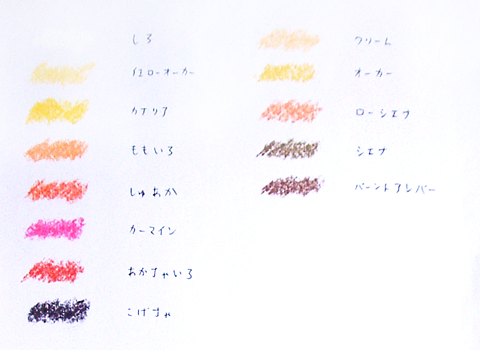 しろ
イエローオーカー
カナリア
ももいろ
しゅあか
カーマイン
あかちゃいろ
こげちゃ
クリーム
オーカー
ローシエナ
シエナ
バーントアンバー